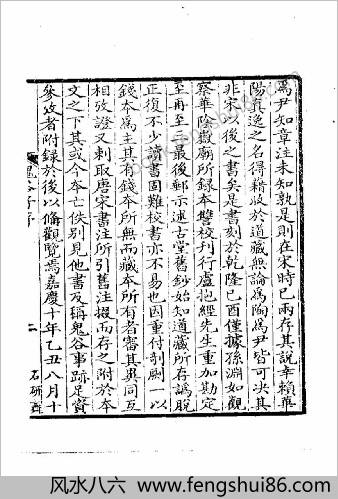 爲尹知章注未知孰是則在宋時已兩存其說幸賴華
陽真逸之名得藉收於道藏無論爲陶爲尹皆可決其
非宋以後之書矣是書刻於乾隆己酉僅據孫淵如觀
察華陰嶽廟所録本讐校刊行盧抱經先生重加勘定
至再至三最後郵示述古堂舊鈔始知道藏所存譌脫
正復不少讀書固難校書亦不易也因重付剞劂一以
錢本爲主其有錢本所無而藏本所有者審其異同互
相攷證又刺取唐宋書注所引舊注掇而存之附於本
文之下其或今本亡佚別見他書及稱鬼谷事跡足資
參攷者附録於後以備觀覽焉嘉慶十年乙丑八月十
鬼谷子序
二
石研齋
风水八六 www.fengshui86.com